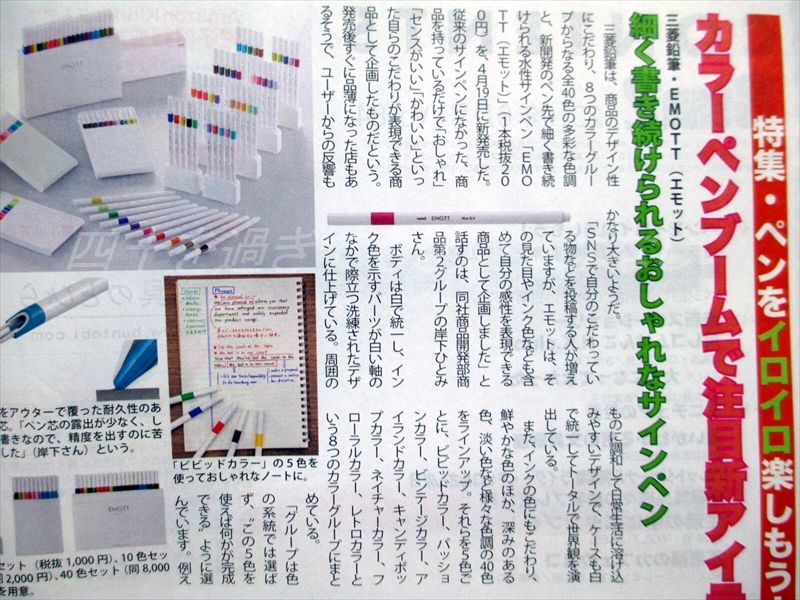 特集・ペンをイロイロ楽しもう
カラーペンブームで注目新アイテ
三菱鉛筆・EMOTT(エモット)
細く書き続けられるおしゃれなサインペン
三菱鉛筆は、商品のデザイン性
にこだわり、8つのカラーグルー
プからなる全40色の多彩な色調
と、新開発のペン先で細く書き続
けられる水性サインペン「EMO
TT(エモット)」(1本税抜20
0円)を、4月19日に新発売した。
従来のサインペンになかった、商
品を持っているだけで「おしゃれ」
「センスがいい」「かわいい」といっ
た自らのこだわりが表現できる商
品として企画したものだという。
発売後すぐに品薄になった店もあ
るそうで、ユーザーからの反響も
かなり大きいようだ。
「SNSで自分のこだわってい
る物などを投稿する人が増え
ていますが、エモットは、そ
の見た目やインク色なども含
めて自分の感性を表現できる
商品として企画しました」と
話すのは、同社商品開発部商
品第2グループの岸下ひとみ
さん。
ボディは白で統一し、イン
ク色を示すパーツが白い軸の
なかで際立つ洗練されたデザ
インに仕上げている。周囲の
ものと調和して日常生活に溶け込
みやすいデザインで、ケースも白
で統一してトータルで世界観を演
出している。
また、インクの色にもこだわり、
鮮やかな色のほか、深みのある
色、淡い色など様々な色調の40色
をラインアップ。それらを5色ご
とに、ビビッドカラー、パッショ
ンカラー、ビンテージカラー、ア
イランドカラー、キャンディポッ
プカラー、ネイチャーカラー、フ
ローラルカラー、レトロカラーと
いう8つのカラーグループにまと
めている。
「グループは色
の系統では選ば
ず、“この5色を
使えば何かが完成
できる”ように選
んでいます。例え
uni EMOTT fine 0.4
EMOTT
「ビビッドカラー」の5色を
使っておしゃれなノートに。
をアウターで覆った耐久性のあ
芯。「ペン芯の露出が少なく、し
書きなので、精度を出すのに苦
した」(岸下さん)という。
EMOTT
セット(税抜 1,000円)、10色セッ
同 2,000円)、40色セット(同 8,000
を用意。
Words
Phrases
四十 過ぎ